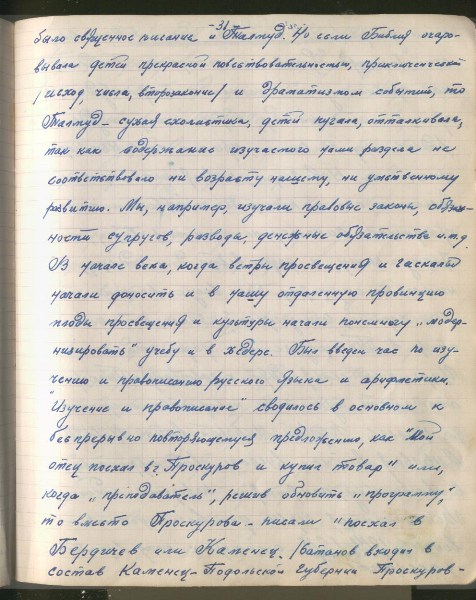 -31-
было священное писание и Талмуд. Но если Библия очаро-
вывала детей прекрасной повествовательностью, приключенческой
/исход, числа, второзаконие/ и драматизмом событий, то
Талмуд - сухая схоластика, детей пугала, отталкивала,
так как содержание изучаемого нами раздела не
соответствовало ни возрасту нашему, ни умственному
развитию. Мы, например, изучали правовые законы, обязан-
ности супругов, разводы, денежные обязательства и.т.д.
В начале века, когда ветры просвещения и гаскалы
начали доносить и в нашу отдаленную провинцию
плоды просвещения и культуры начали понемногу „модер-
низировать" учебу и в хедере. Был введен час по изу-
чению и правописанию русского языка и арифметики.
"Изучение и правописание" сводилось в основном к
беспрерывно повторяющемуся предложению, как "Мой
отец поехал в г. Проскуров и купил товар" или,
когда „преподаватель", решив обновить „программу",
то вместо Проскурова - писали "поехал в
Бердичев или Каменец. /Сатанов входил в
состав Каменец-Подольской губернии Проскуров-